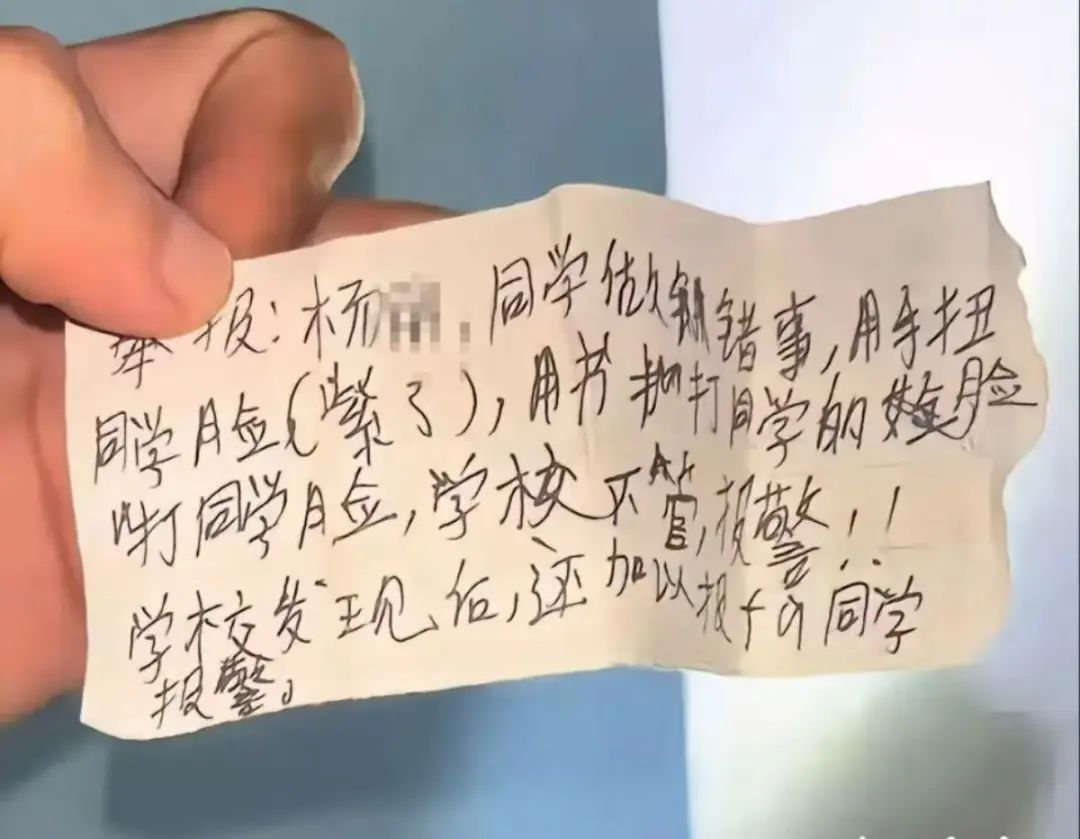 举报:杨,同学做错事,用手扭
同学脸(紫了),用书抽打同学的脸
打同学脸,学校不管,报警!!
学校发现后,还加以报fq同学
报警。